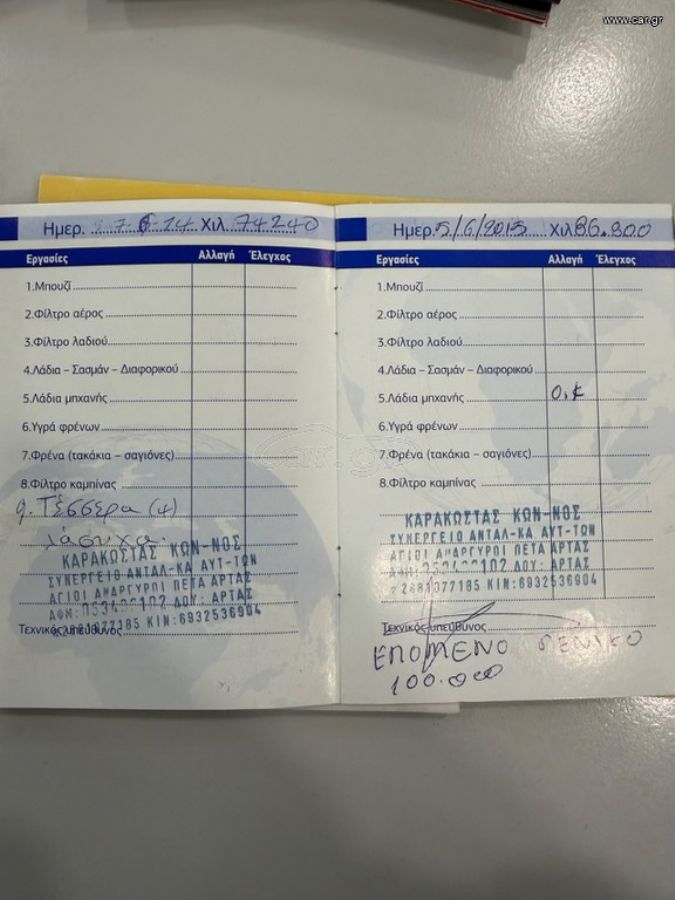 www.car.gr
Ημερ. 27 6 14 Χιλ. 74240
Εργασίες Αλλαγή Έλεγχος
1.Μπουζί
2.Φίλτρο αέρος
3.Φίλτρο λαδιού
4.Λάδια – Σασμάν – Διαφορικού
5.Λάδια μηχανής
6.Υγρά φρένων
7.Φρένα (τακάκια – σαγιόνες)
8.Φίλτρο καμπίνας
9. Τέσσερα (4)
λάστιχα.
ΚΑΡΑΚΩΣΤΑΣ ΚΩΝ-ΝΟΣ
ΣΥΝΕΡΓΕΙΟ ΑΝΤΑΛ-ΚΑ ΑΥΤ-ΤΩΝ
ΑΓΙΟΙ ΑΝΑΡΓΥΡΟΙ ΠΕΤΑ ΑΡΤΑΣ
ΑΦΜ: ΔΟΥ: ΑΡΤΑΣ
2681077185 ΚΙΝ:6932536904
Τεχνικός υπεύθυνος
Ημερ. 5/6/2015 Χιλ 86.800
Εργασίες Αλλαγή Έλεγχος
1.Μπουζί
2.Φίλτρο αέρος
3.Φίλτρο λαδιού
4.Λάδια – Σασμάν – Διαφορικού
5.Λάδια μηχανής Ο.κ
6.Υγρά φρένων
7.Φρένα (τακάκια – σαγιόνες)
8.Φίλτρο καμπίνας
ΚΑΡΑΚΩΣΤΑΣ ΚΩΝ-ΝΟΣ
ΣΥΝΕΡΓΕΙΟ ΑΝΤΑΛ-ΚΑ ΑΥΤ-ΤΩΝ
ΑΓΙΟΙ ΑΝΑΡΓΥΡΟΙ ΠΕΤΑ ΑΡΤΑΣ
ΑΦΜ: ΔΟΥ: ΑΡΤΑΣ
2681077185 ΚΙΝ:6932536904
Τεχνικός υπεύθυνος
ΕΠΟΜΕΝΟ ΓΕΝΙΚΟ
100.000